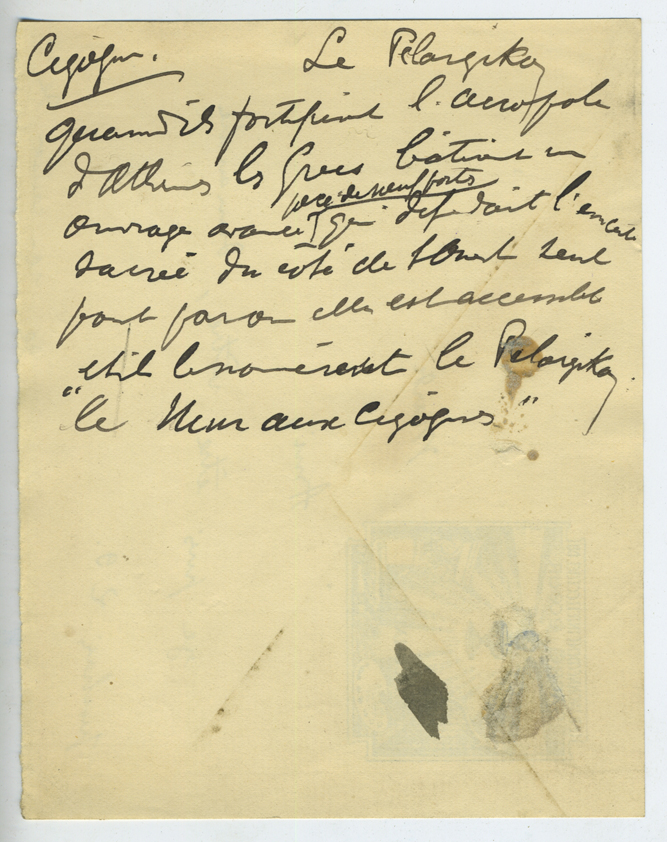 Cigogne. Le Pelargikon
quand ils fortifièrent l'acropole
d'Athènes les Grecs bâtirent un
percé de neuf portes
ouvrage avancé qui défendait l'enceinte
sacrée du côté de l'Ouest seul
point par où elle est accessible
et ils le nommèrent le Pelargikon
"le Mur aux Cigognes"